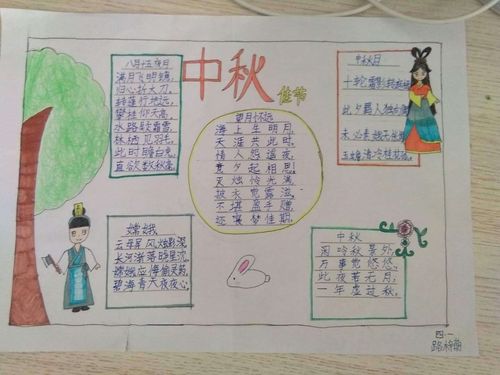 中秋
佳节
八月十五夜月
满月飞明镜,
归心折大刀。
转蓬行地远,
攀桂仰天高。
水路疑霜雪,
林栖见羽毛。
此时瞻白兔,
直欲数秋毫。
望月怀远
海上生明月,
天涯共此时。
情人怨遥夜,
竟夕起相思。
灭烛怜光满,
披衣觉露滋。
不堪盈手赠,
还寝梦佳期。
中秋月
十轮霜影转庭梧
此夕羁人独向隅
未必素娥
玉蟾清冷桂花孤
嫦娥
云母屏风烛影深,
长河渐落晓星沉。
嫦娥应悔偷灵药,
碧海青天夜夜心。
中秋
闲吟秋景外,
万事觉悠悠。
此夜若无月,
一年虚过秋。
四·一